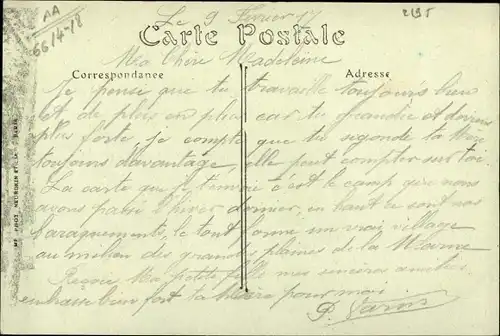 Le 9 Février 17
2195
AA
66/4-18
Carte Postale
Ma Chère Madeleine
Correspondance
Adresse
Je pense que tu travaille toujours bien
et de plus en plus car tu grandie et deviens
plus forte, je compte que tu segonde ta Mère
toujours davantage, elle peut compter sur toi.
La carte que je t'envoie c'est le camp que nous
avons passé l'hiver dernier, en haut ce sont nos
baraquements, le tout forme un vrai village
au milieu des grandes plaines de la Marne
Reçois Ma petite fille mes sincères amitiés,
embrasse bien fort ta Mère pour moi